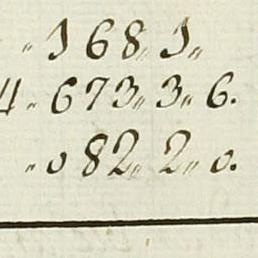 „ 168„ 1„
4„ 673„ 3„ 6.
„ 082„ 2„ 0.